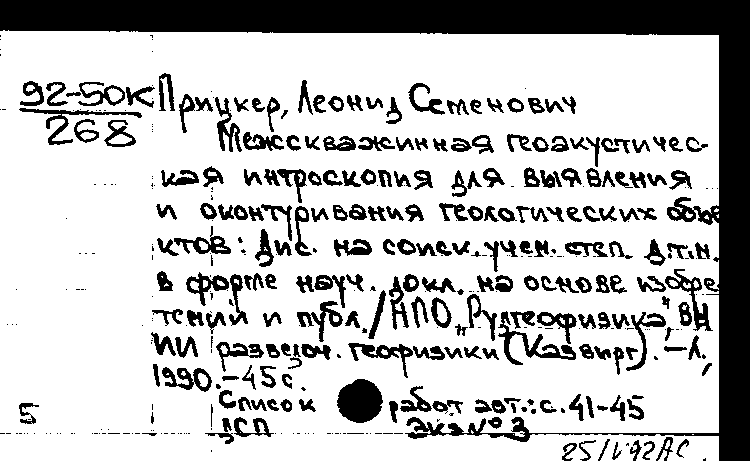 92-50К Прицкер, Леонид Семенович
268
Межскважинная геоакустичес-
кая интроскопия для выявления
и оконтуривания геологических объе
ктов: Дис. на соиск. учен. степ. д.т.н.
в форме науч. докл. на основе изобре
тений и публ. / НПО "Рудгеофизика", ВН
ИИ разведоч. геофизики (Казвирг). -Л.,
1990. -45 с.
Список работ авт.: с. 41-45
5 ДСП Экз № 3